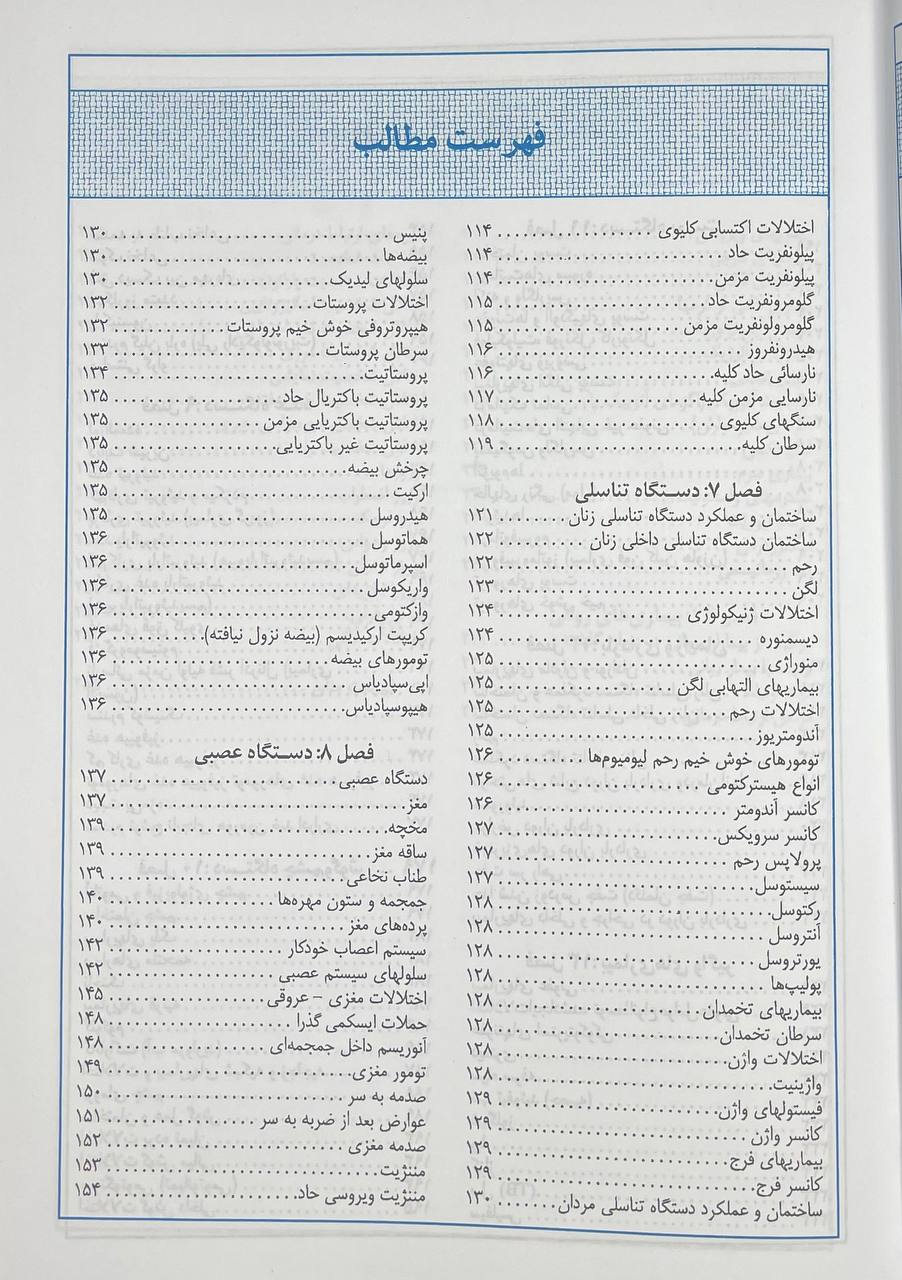 فهرست مطالب
اختلالات اکتسابی کلیوی ۱۱۴
پیلونفریت حاد ۱۱۴
پیلونفریت مزمن ۱۱۴
گلومرونفریت حاد ۱۱۵
گلومرولونفریت مزمن ۱۱۵
هیدرونفروز ۱۱۶
نارسائی حاد کلیه ۱۱۶
نارسایی مزمن کلیه ۱۱۷
سنگهای کلیوی ۱۱۸
سرطان کلیه ۱۱۹
فصل ۷: دستگاه تناسلی
ساختمان و عملکرد دستگاه تناسلی زنان ۱۲۱
ساختمان دستگاه تناسلی داخلی زنان ۱۲۲
رحم ۱۲۲
لگن ۱۲۳
اختلالات ژنیکولوژی ۱۲۴
دیسمنوره ۱۲۴
منوراژی ۱۲۵
بیماریهای التهابی لگن ۱۲۵
اختلالات رحم ۱۲۵
آندومتریوز ۱۲۵
تومورهای خوش خیم رحم لیومیوم‌ها ۱۲۶
انواع هیسترکتومی ۱۲۶
کانسر آندومتر ۱۲۶
کانسر سرویکس ۱۲۷
پرولاپس رحم ۱۲۷
سیستوسل ۱۲۷
رکتوسل ۱۲۸
آنتروسل ۱۲۸
یورتروسل ۱۲۸
پولیپ‌ها ۱۲۸
بیماریهای تخمدان ۱۲۸
سرطان تخمدان ۱۲۸
اختلالات واژن ۱۲۸
واژینیت ۱۲۸
فیستولهای واژن ۱۲۹
کانسر واژن ۱۲۹
بیماریهای فرج ۱۲۹
کانسر فرج ۱۲۹
ساختمان و عملکرد دستگاه تناسلی مردان ۱۳۰
پنیس ۱۳۰
بیضه‌ها ۱۳۰
سلولهای لیدیک ۱۳۰
اختلالات پروستات ۱۳۲
هیپروتروفی خوش خیم پروستات ۱۳۲
سرطان پروستات ۱۳۳
پروستاتیت ۱۳۴
پروستاتیت باکتریال حاد ۱۳۵
پروستاتیت باکتریایی مزمن ۱۳۵
پروستاتیت غیر باکتریایی ۱۳۵
چرخش بیضه ۱۳۵
ارکیت ۱۳۵
هیدروسل ۱۳۵
هماتوسل ۱۳۶
اسپرماتوسل ۱۳۶
واریکوسل ۱۳۶
وازکتومی ۱۳۶
کریپت ارکیدیسم (بیضه نزول نیافته) ۱۳۶
تومورهای بیضه ۱۳۶
اپی‌سپادیاس ۱۳۶
هیپوسپادیاس ۱۳۶
فصل ۸: دستگاه عصبی
دستگاه عصبی ۱۳۷
مغز ۱۳۷
مخچه ۱۳۹
ساقه مغز ۱۳۹
طناب نخاعی ۱۳۹
جمجمه و ستون مهره‌ها ۱۴۰
پرده‌های مغز ۱۴۰
سیستم اعصاب خودکار ۱۴۲
سلولهای سیستم عصبی ۱۴۲
اختلالات مغزی - عروقی ۱۴۵
حملات ایسکمی گذرا ۱۴۸
آنوریسم داخل جمجمه‌ای ۱۴۸
تومور مغزی ۱۴۹
صدمه به سر ۱۵۰
عوارض بعد از ضربه به سر ۱۵۱
صدمه مغزی ۱۵۲
مننژیت ۱۵۳
مننژیت ویروسی حاد ۱۵۴